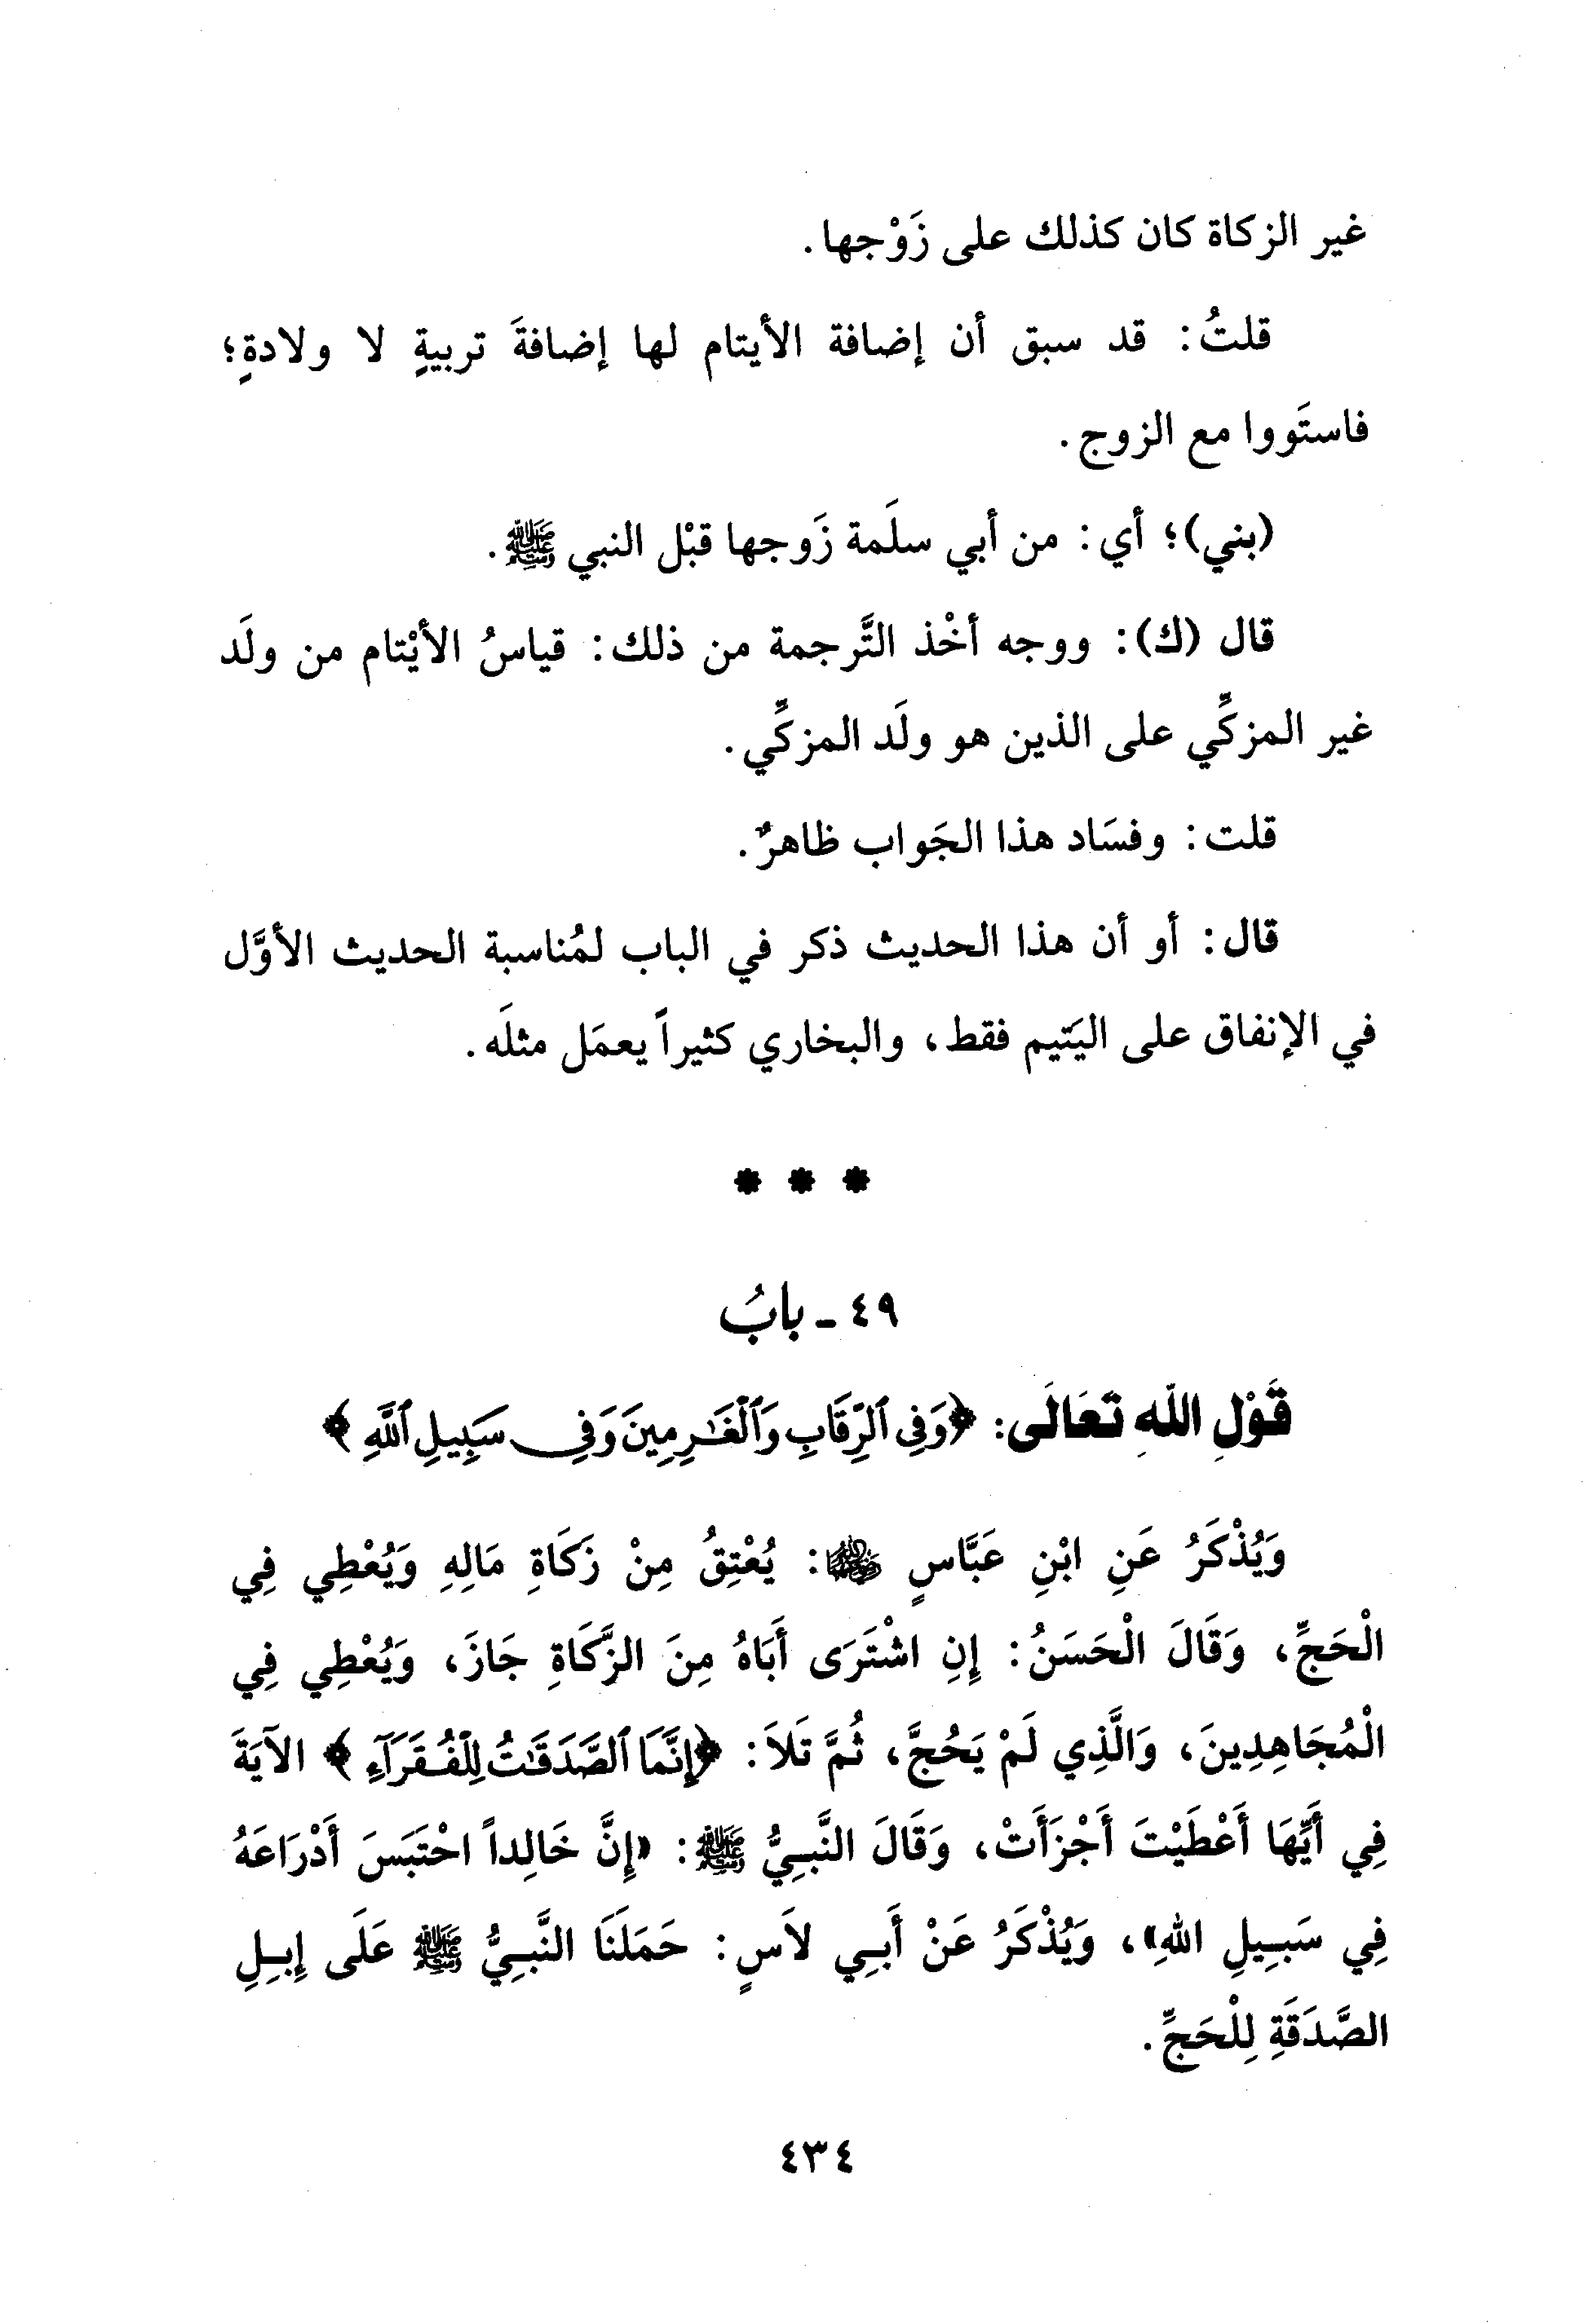 غير الزكاة كان كذلك على زَوْجها.
قلتُ: قد سبق أن إضافة الأيتام لها إضافةَ تربيةٍ لا ولادةٍ؛
فاستَووا مع الزوج.
(بني)؛ أي: من أبي سلَمة زَوجها قبْل النبي ﷺ.
قال (ك): ووجه أخْذ التَّرجمة من ذلك: قياسُ الأيْتام من ولَد
غير المزكِّي على الذين هو ولَد المزكِّي.
قلت: وفسَاد هذا الجَواب ظاهرٌ.
قال: أو أن هذا الحديث ذكر في الباب لمُناسبة الحديث الأوَّل
في الإنفاق على اليَتيم فقط، والبخاري كثيراً يعمَل مثلَه.
* * *
٤٩ - بابُ
قَوْلِ اللهِ تَعَالَى: ﴿وَفِي ٱلرِّقَابِ وَٱلْغَـٰرِمِينَ وَفِي سَبِيلِ ٱللَّهِ﴾
وَيُذْكَرُ عَنِ ابْنِ عَبَّاسٍ ﵄: يُعْتِقُ مِنْ زَكَاةِ مَالِهِ وَيُعْطِي فِي
الْحَجِّ، وَقَالَ الْحَسَنُ: إِنِ اشْتَرَى أَبَاهُ مِنَ الزَّكَاةِ جَازَ، وَيُعْطِي فِي
الْمُجَاهِدِينَ، وَالَّذِي لَمْ يَحُجَّ، ثُمَّ تَلاَ: ﴿إِنَّمَا ٱلصَّدَقَـٰتُ لِلْفُقَرَآءِ﴾ الآيَةَ
فِي أَيِّهَا أَعْطَيْتَ أَجْزَأَتْ، وَقَالَ النَّبِيُّ ﷺ: «إِنَّ خَالِداً احْتَبَسَ أَدْرَاعَهُ
فِي سَبِيلِ اللهِ»، وَيُذْكَرُ عَنْ أَبِي لاَسٍ: حَمَلَنَا النَّبِيُّ ﷺ عَلَى إِبِلِ
الصَّدَقَةِ لِلْحَجِّ.
٤٣٤